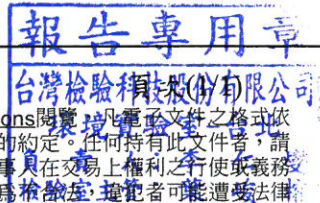 報告專用章
台灣檢驗科技股份有限公司
頁次(1/1)
ons閱覽,凡電子文件之格式依
環境實驗室-台北
的約定。任何持有此文件者,請
事人在交易上權利之行使或義務
為不合法,違犯者可能遭受法律